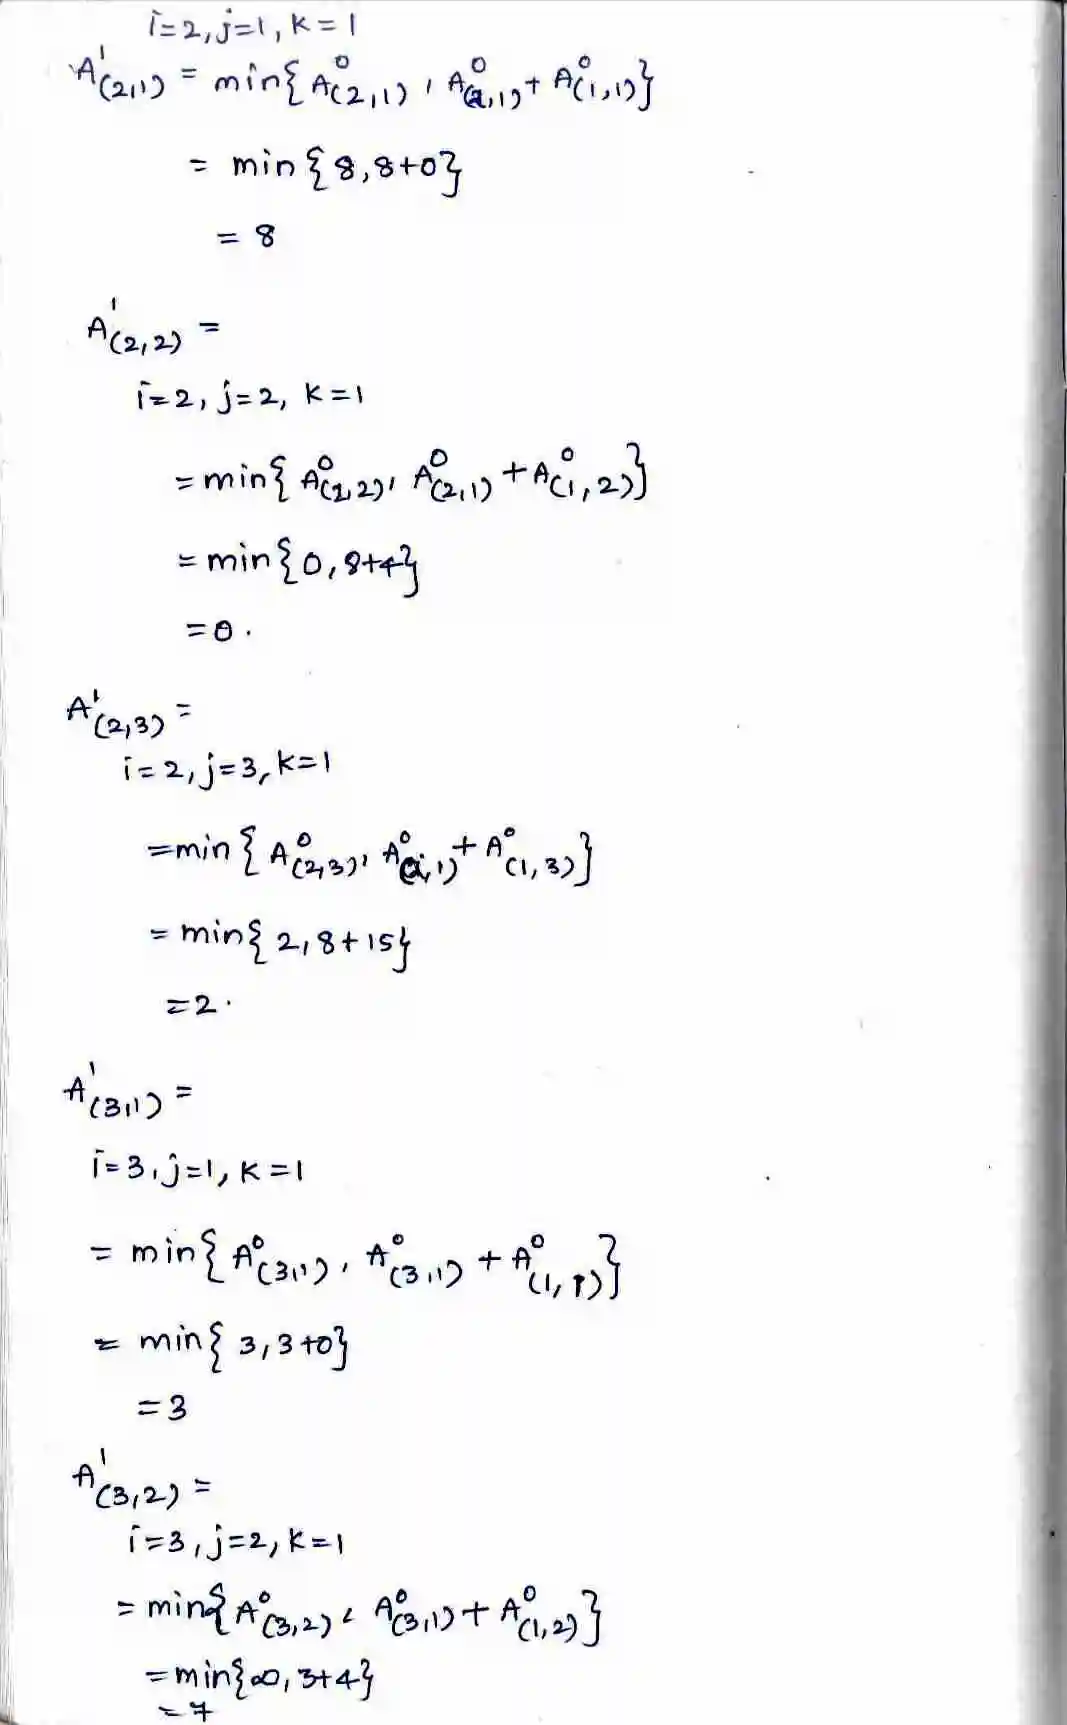 i=2, j=1, k=1
A¹(2,1) = min{A⁰(2,1), A⁰(2,1)+A⁰(1,1)}
= min{8, 8+0}
= 8
A¹(2,2) =
i=2, j=2, k=1
= min{A⁰(2,2), A⁰(2,1)+A⁰(1,2)}
= min{0, 8+4}
= 0.
A¹(2,3) =
i=2, j=3, k=1
= min{A⁰(2,3), A⁰(2,1)+A⁰(1,3)}
= min{2, 8+15}
= 2.
A¹(3,1) =
i=3, j=1, k=1
= min{A⁰(3,1), A⁰(3,1)+A⁰(1,1)}
= min{3, 3+0}
= 3
A¹(3,2) =
i=3, j=2, k=1
= min{A⁰(3,2), A⁰(3,1)+A⁰(1,2)}
= min{∞, 3+4}
= 7